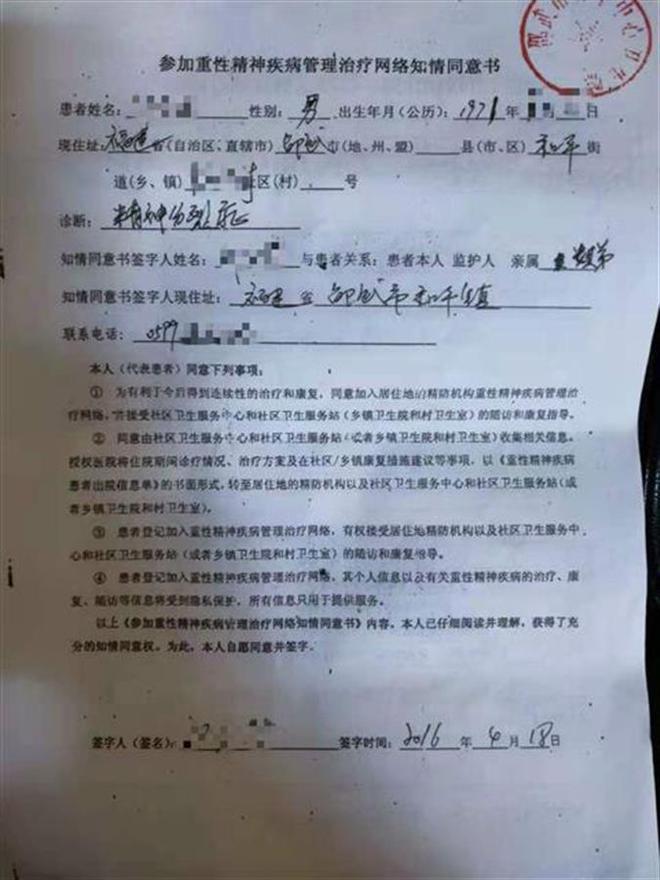 参加重性精神疾病管理治疗网络知情同意书
患者姓名: 性别: 男 出生年月(公历): 1971 年 日
现住址: 福建省(自治区、直辖市) 邵武市(地、州、盟) 县(市、区) 和平街
道(乡、镇) 社区(村) 号
诊断: 精神分裂症
知情同意书签字人姓名: 与患者关系: 患者本人 监护人 亲属
知情同意书签字人现住址: 福建省邵武市和平镇
联系电话: 0599
本人(代表患者)同意下列事项:
① 为有利于今后得到连续性的治疗和康复,同意加入居住地的精防机构重性精神疾病管理治
疗网络,并接受社区卫生服务中心和社区卫生服务站(乡镇卫生院和村卫生室)的随访和康复指导。
② 同意由社区卫生服务中心和社区卫生服务站(或者乡镇卫生院和村卫生室)收集相关信息。
授权医院将住院期间诊疗情况、治疗方案及在社区/乡镇康复措施建议等事项,以《重性精神疾病
患者出院信息单》的书面形式,转至居住地的精防机构以及社区卫生服务中心和社区卫生服务站(或
者乡镇卫生院和村卫生室)。
③ 患者登记加入重性精神疾病管理治疗网络,有权接受居住地精防机构以及社区卫生服务中
心和社区卫生服务站(或者乡镇卫生院和村卫生室)的随访和康复指导。
④ 患者登记加入重性精神疾病管理治疗网络,其个人信息以及有关重性精神疾病的治疗、康
复、随访等信息将受到隐私保护,所有信息只用于提供服务。
以上《参加重性精神疾病管理治疗网络知情同意书》内容,本人已仔细阅读并理解,获得了充
分的知情同意权。为此,本人自愿同意并签字。
签字人(签名): 签字时间: 2016 年 4 月 18 日